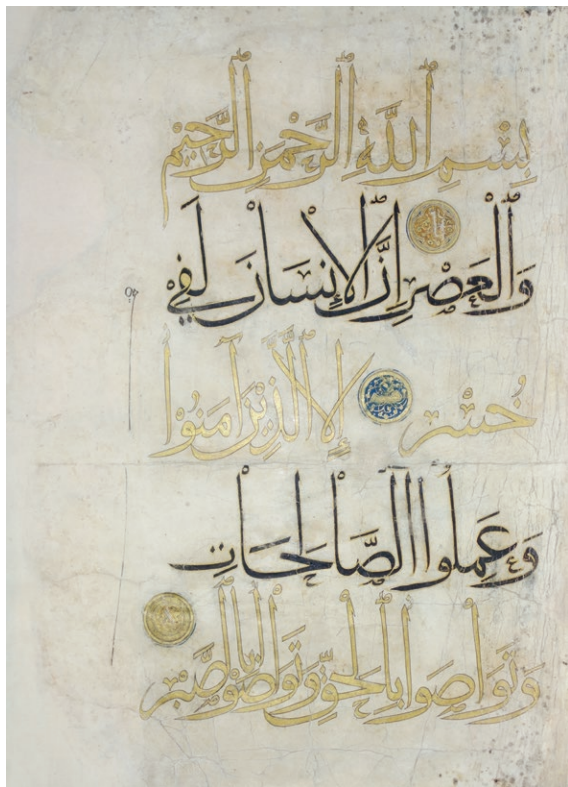 بِسْمِ اللَّهِ الرَّحْمَنِ الرَّحِيمِ
وَالْعَصْرِ إِنَّ الْإِنْسَانَ لَفِي
خُسْرٍ إِلَّا الَّذِينَ آمَنُوا
وَعَمِلُوا الصَّالِحَاتِ
وَتَوَاصَوْا بِالْحَقِّ وَتَوَاصَوْا بِالصَّبْرِ